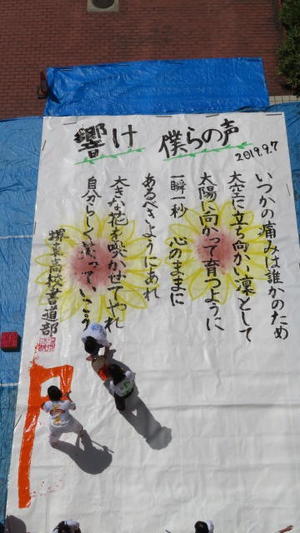 響け 僕らの声
2019.9.7
いつかの痛みは誰かのため
大空に立ち向かい凛として
太陽に向かって育つように
一瞬一秒 心のままに
あるべきようにあれ
大きな花を咲かせてやれ
自分らしく笑っていこう
堺東高校書道部